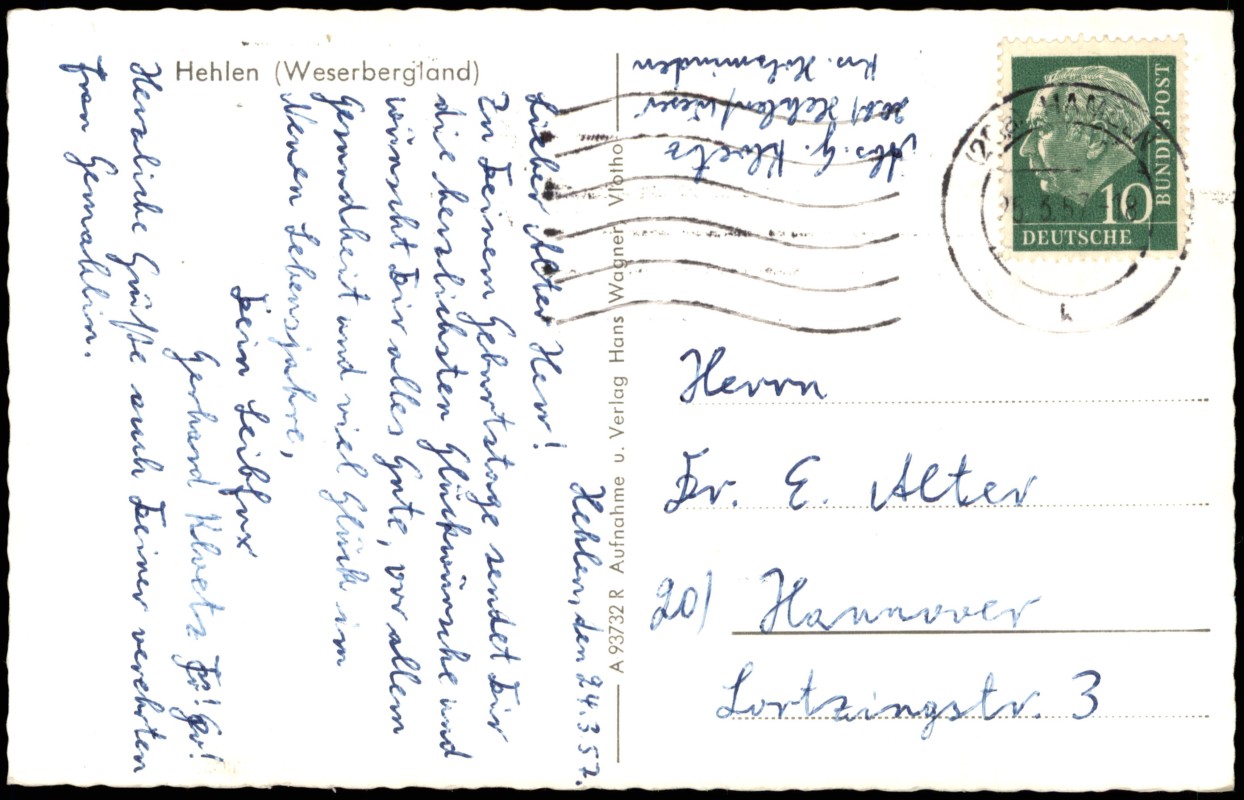 Hehlen (Weserbergland)
Hehlen, den 24.3.57.
Lieber Alter Herr!
Zu Deinem Geburtstage sendet Dir
die herzlichsten Glückwünsche und
wünscht Dir alles Gute, vor allem
Gesundheit und viel Glück im
Neuen Lebensjahre,
Dein Leibfux
Gerhard Kloetz
Herzliche Grüße auch Deiner verehrten
Frau Gemahlin.
A 93732 R Aufnahme u. Verlag Hans Wagner, Vlotho
Abs. G. Kloetz
Hehlen/Weser
Krs. Holzminden
HAMELN
DEUTSCHE
BUNDESPOST
10
Herrn
Dr. E. Alter
20) Hannover
Lortzingstr. 3